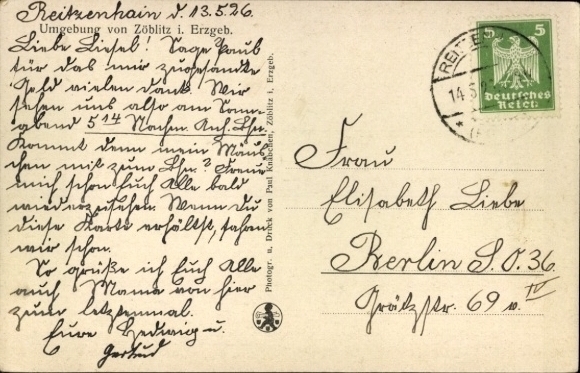 Reitzenhain d. 13.5.26.
Umgebung von Zöblitz i. Erzgeb.
Liebe Liesel! Sage Paul
für das mir zugesandte
Geld vielen Dank. Wir
sehen uns also am Sonn-
abend 5 14 Nachm. Anh. Bhn.
Kommt denn mein Mäus-
chen mit zum Bhn.? Freue
mich schon Euch Alle bald
wiederzusehen. Wenn Du
diese Karte erhältst, fahren
wir schon.
So grüße ich Euch Alle
auch Mama von hier
zum letztenmal.
Eure Hedwig u.
Gertrud
Photogr. u. Druck von Paul Knäbchen, Zöblitz i. Erzgeb.
5 5
Deutsches
Reich
14.5.
Frau
Elisabeth Liebe
Berlin S.O. 36.
Grätzstr. 69 v. IV